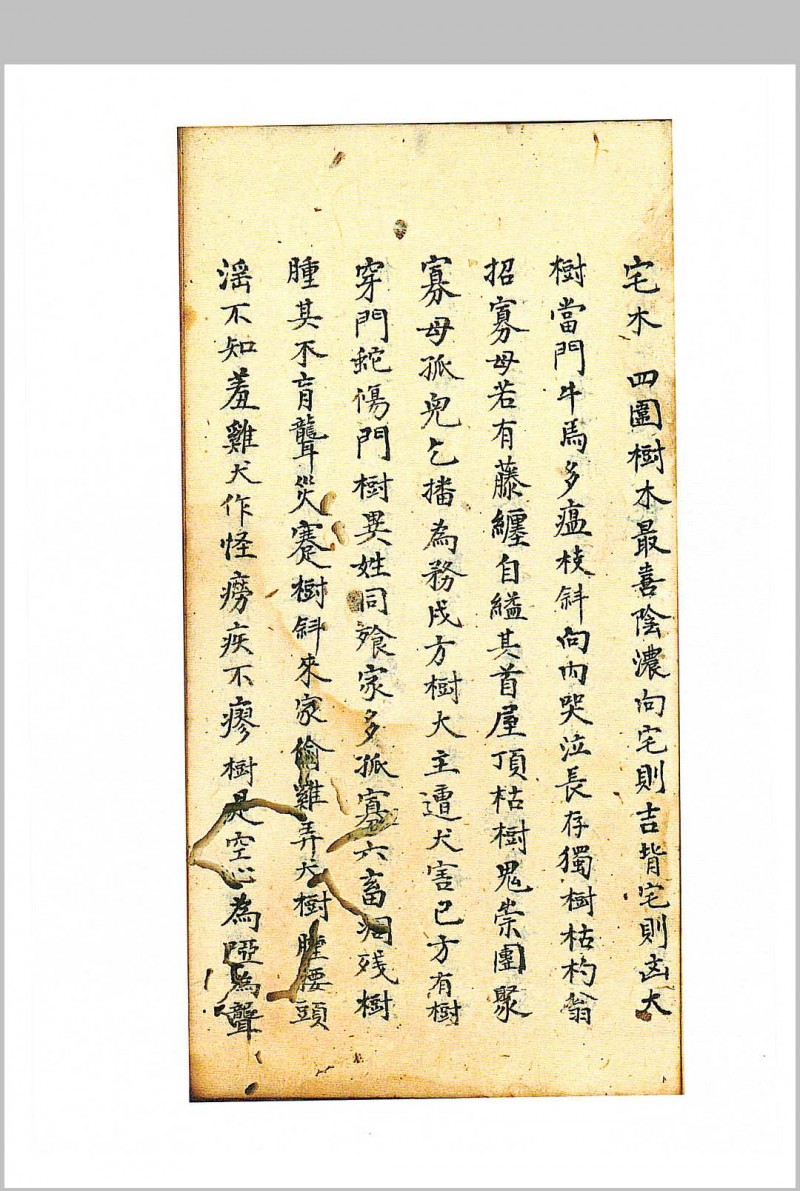 宅木 四圍樹木最喜陰濃向宅則吉背宅則凶大
樹當門牛馬多瘟枝斜向內哭泣長存獨樹枯杓翁
招寡母若有藤纏自縊其首屋頂枯樹鬼祟團聚
寡母孤兒乞播為務戌方樹大主遭犬害巳方有樹
穿門蛇傷門樹異姓同飱家多孤寡六畜凋残樹
腫其不肓聾災蹇樹斜來家偷雞弄犬樹腫腰頭
滛不知羞雞犬作怪癆疾不瘳樹是空心為啞為聾